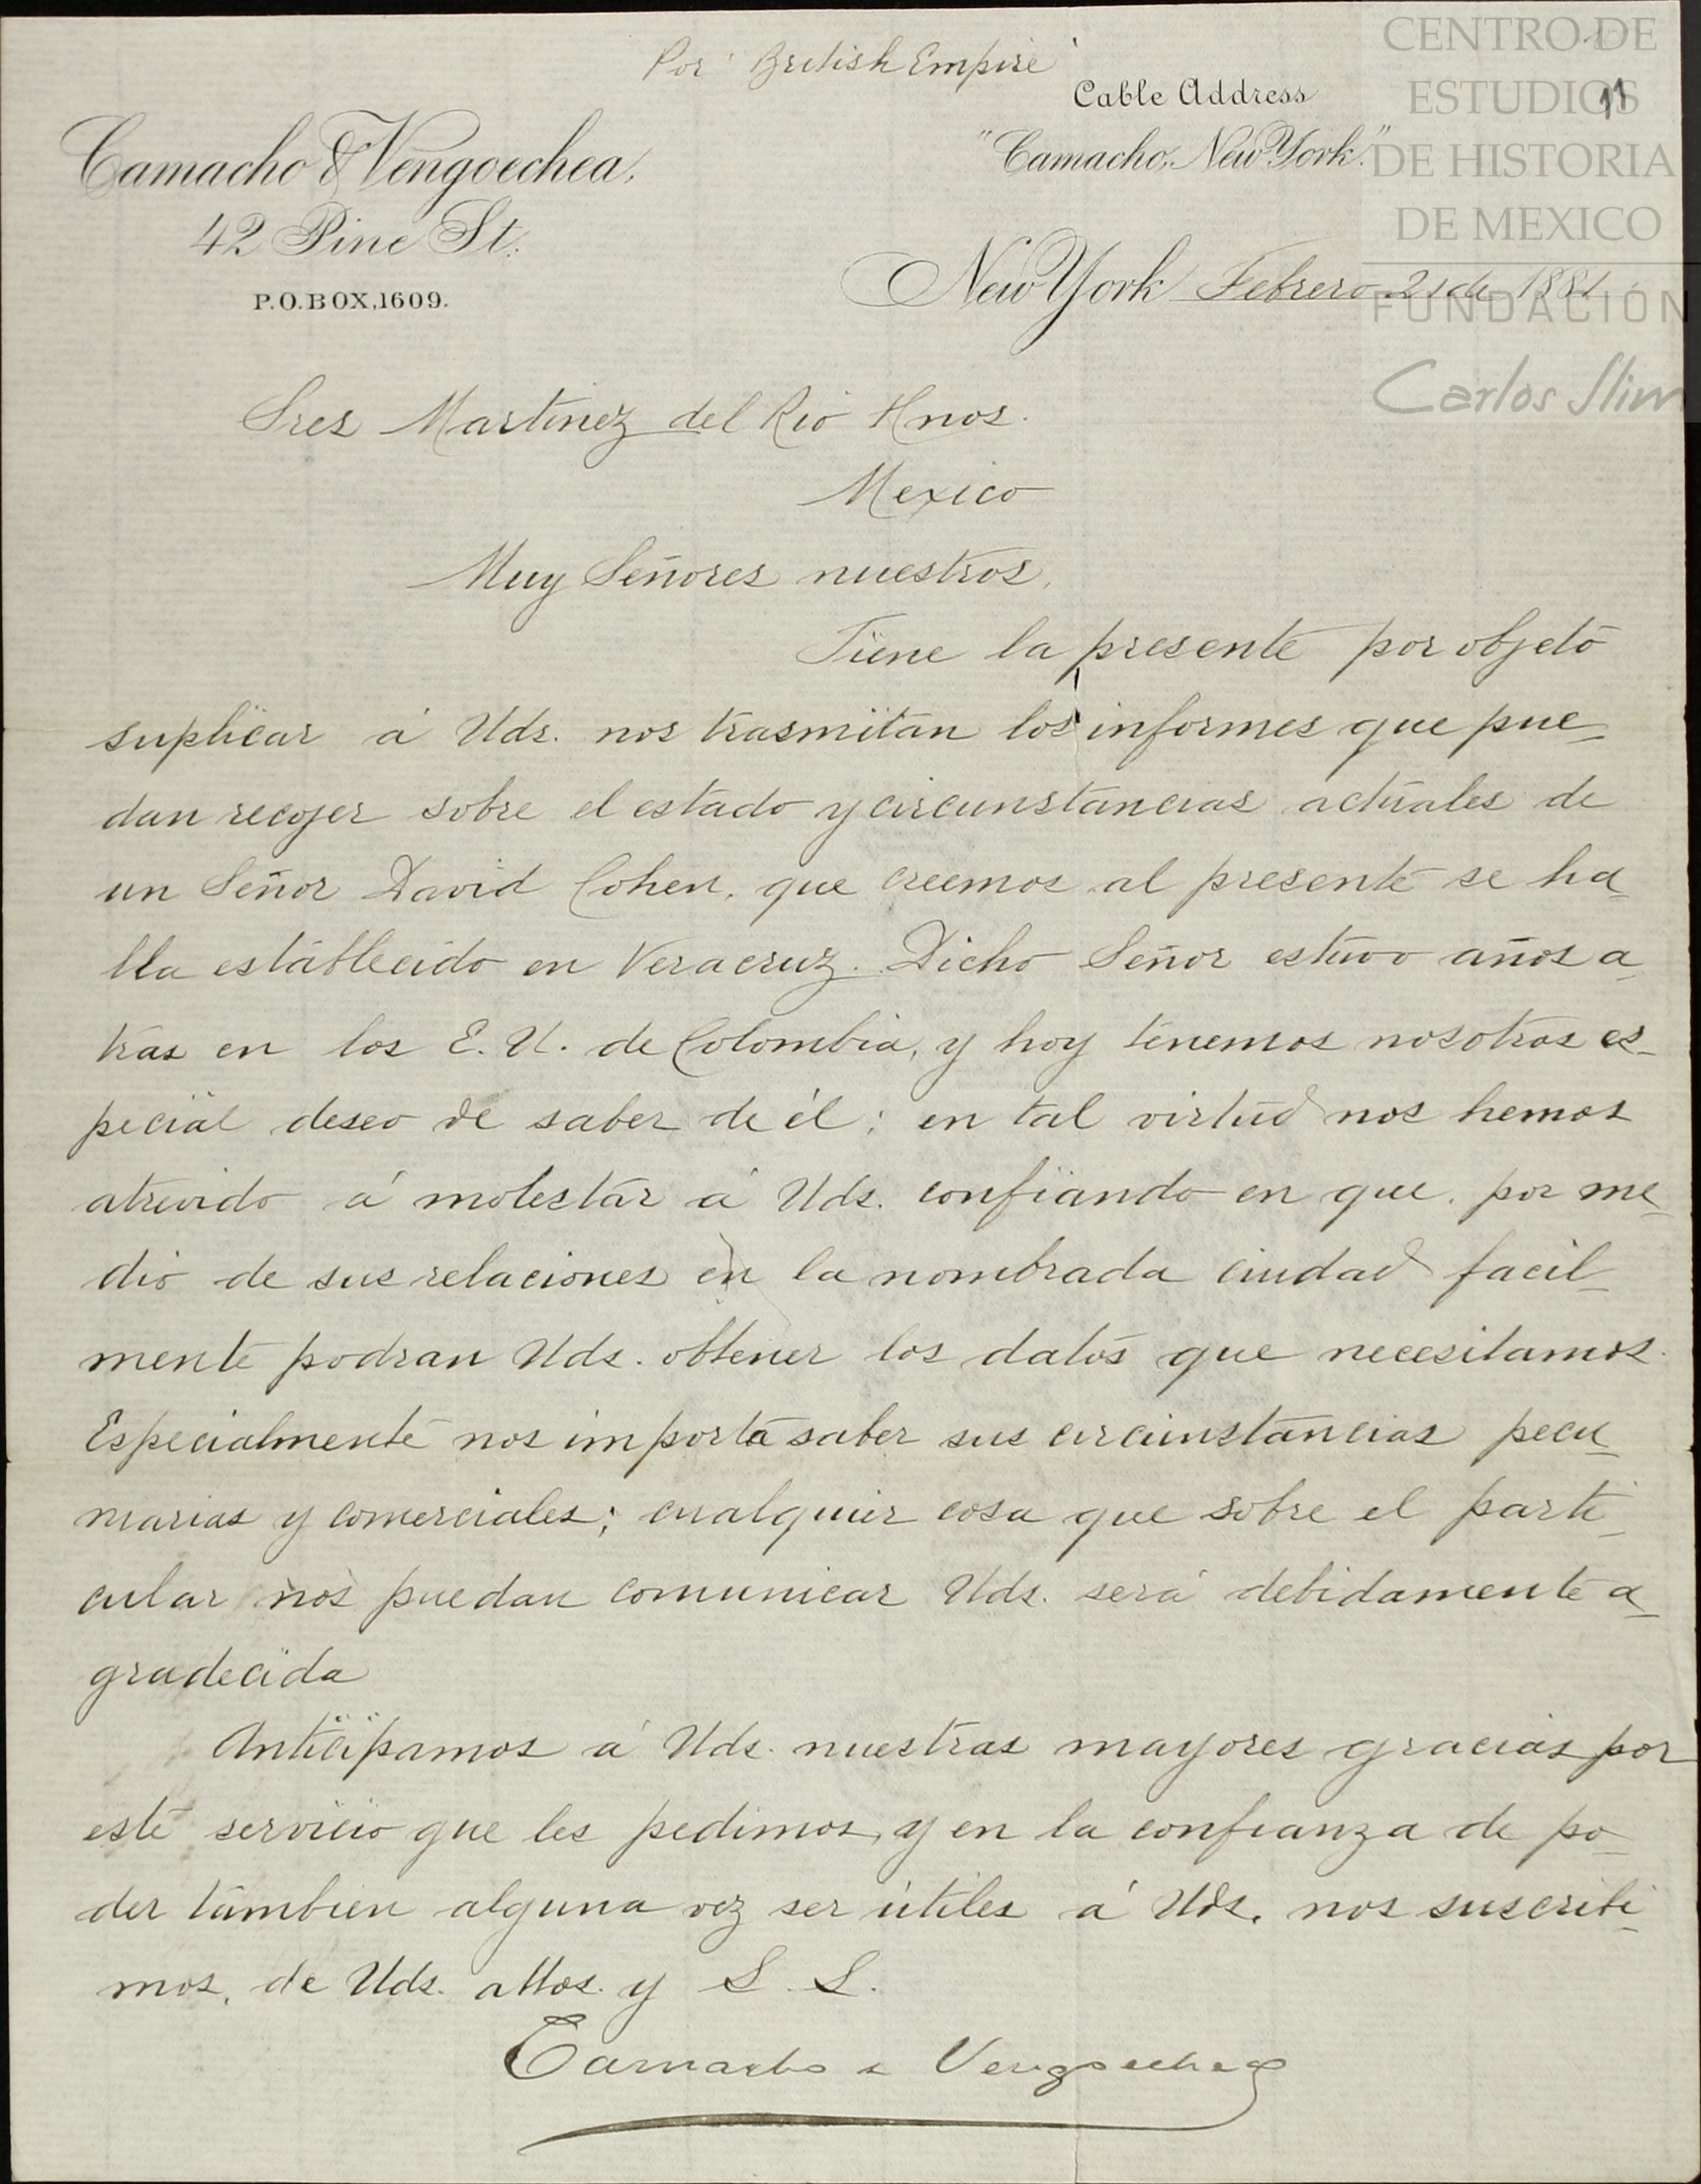 Por "British Empire"
Cable Address
"Camacho, New York."
Camacho & Vengoechea,
42 Pine St.
P.O. BOX, 1609.
New York Febrero 21 de 1881
Sres Martinez del Rio Hnos.
Mexico
Muy Señores nuestros,
Tiene la presente por objeto
suplicar á Uds. nos trasmitan los informes que pue-
dan recojer sobre el estado y circunstancias actuales de
un Señor David Cohen, que creemos al presente se ha-
lla establecido en Veracruz. Dicho Señor estuvo años a-
tras en los E. U. de Colombia, y hoy tenemos nosotros es-
pecial deseo de saber de él; en tal virtud nos hemos
atrevido á molestar á Uds. confiando en que por me-
dio de sus relaciones en la nombrada ciudad facil-
mente podran Uds. obtener los datos que necesitamos.
Especialmente nos importa saber sus circunstancias pecu-
niarias y comerciales; cualquier cosa que sobre el parti-
cular nos puedan comunicar Uds. será debidamente a-
gradecida
Anticipamos á Uds. nuestras mayores gracias por
este servicio que les pedimos, y en la confianza de po-
der tambien alguna vez ser útiles á Uds. nos suscribi-
mos, de Uds. attos. y S. S.
Camacho & Vengoechea
CENTRO DE
ESTUDIOS
DE HISTORIA
DE MEXICO
FUNDACIÓN
Carlos Slim